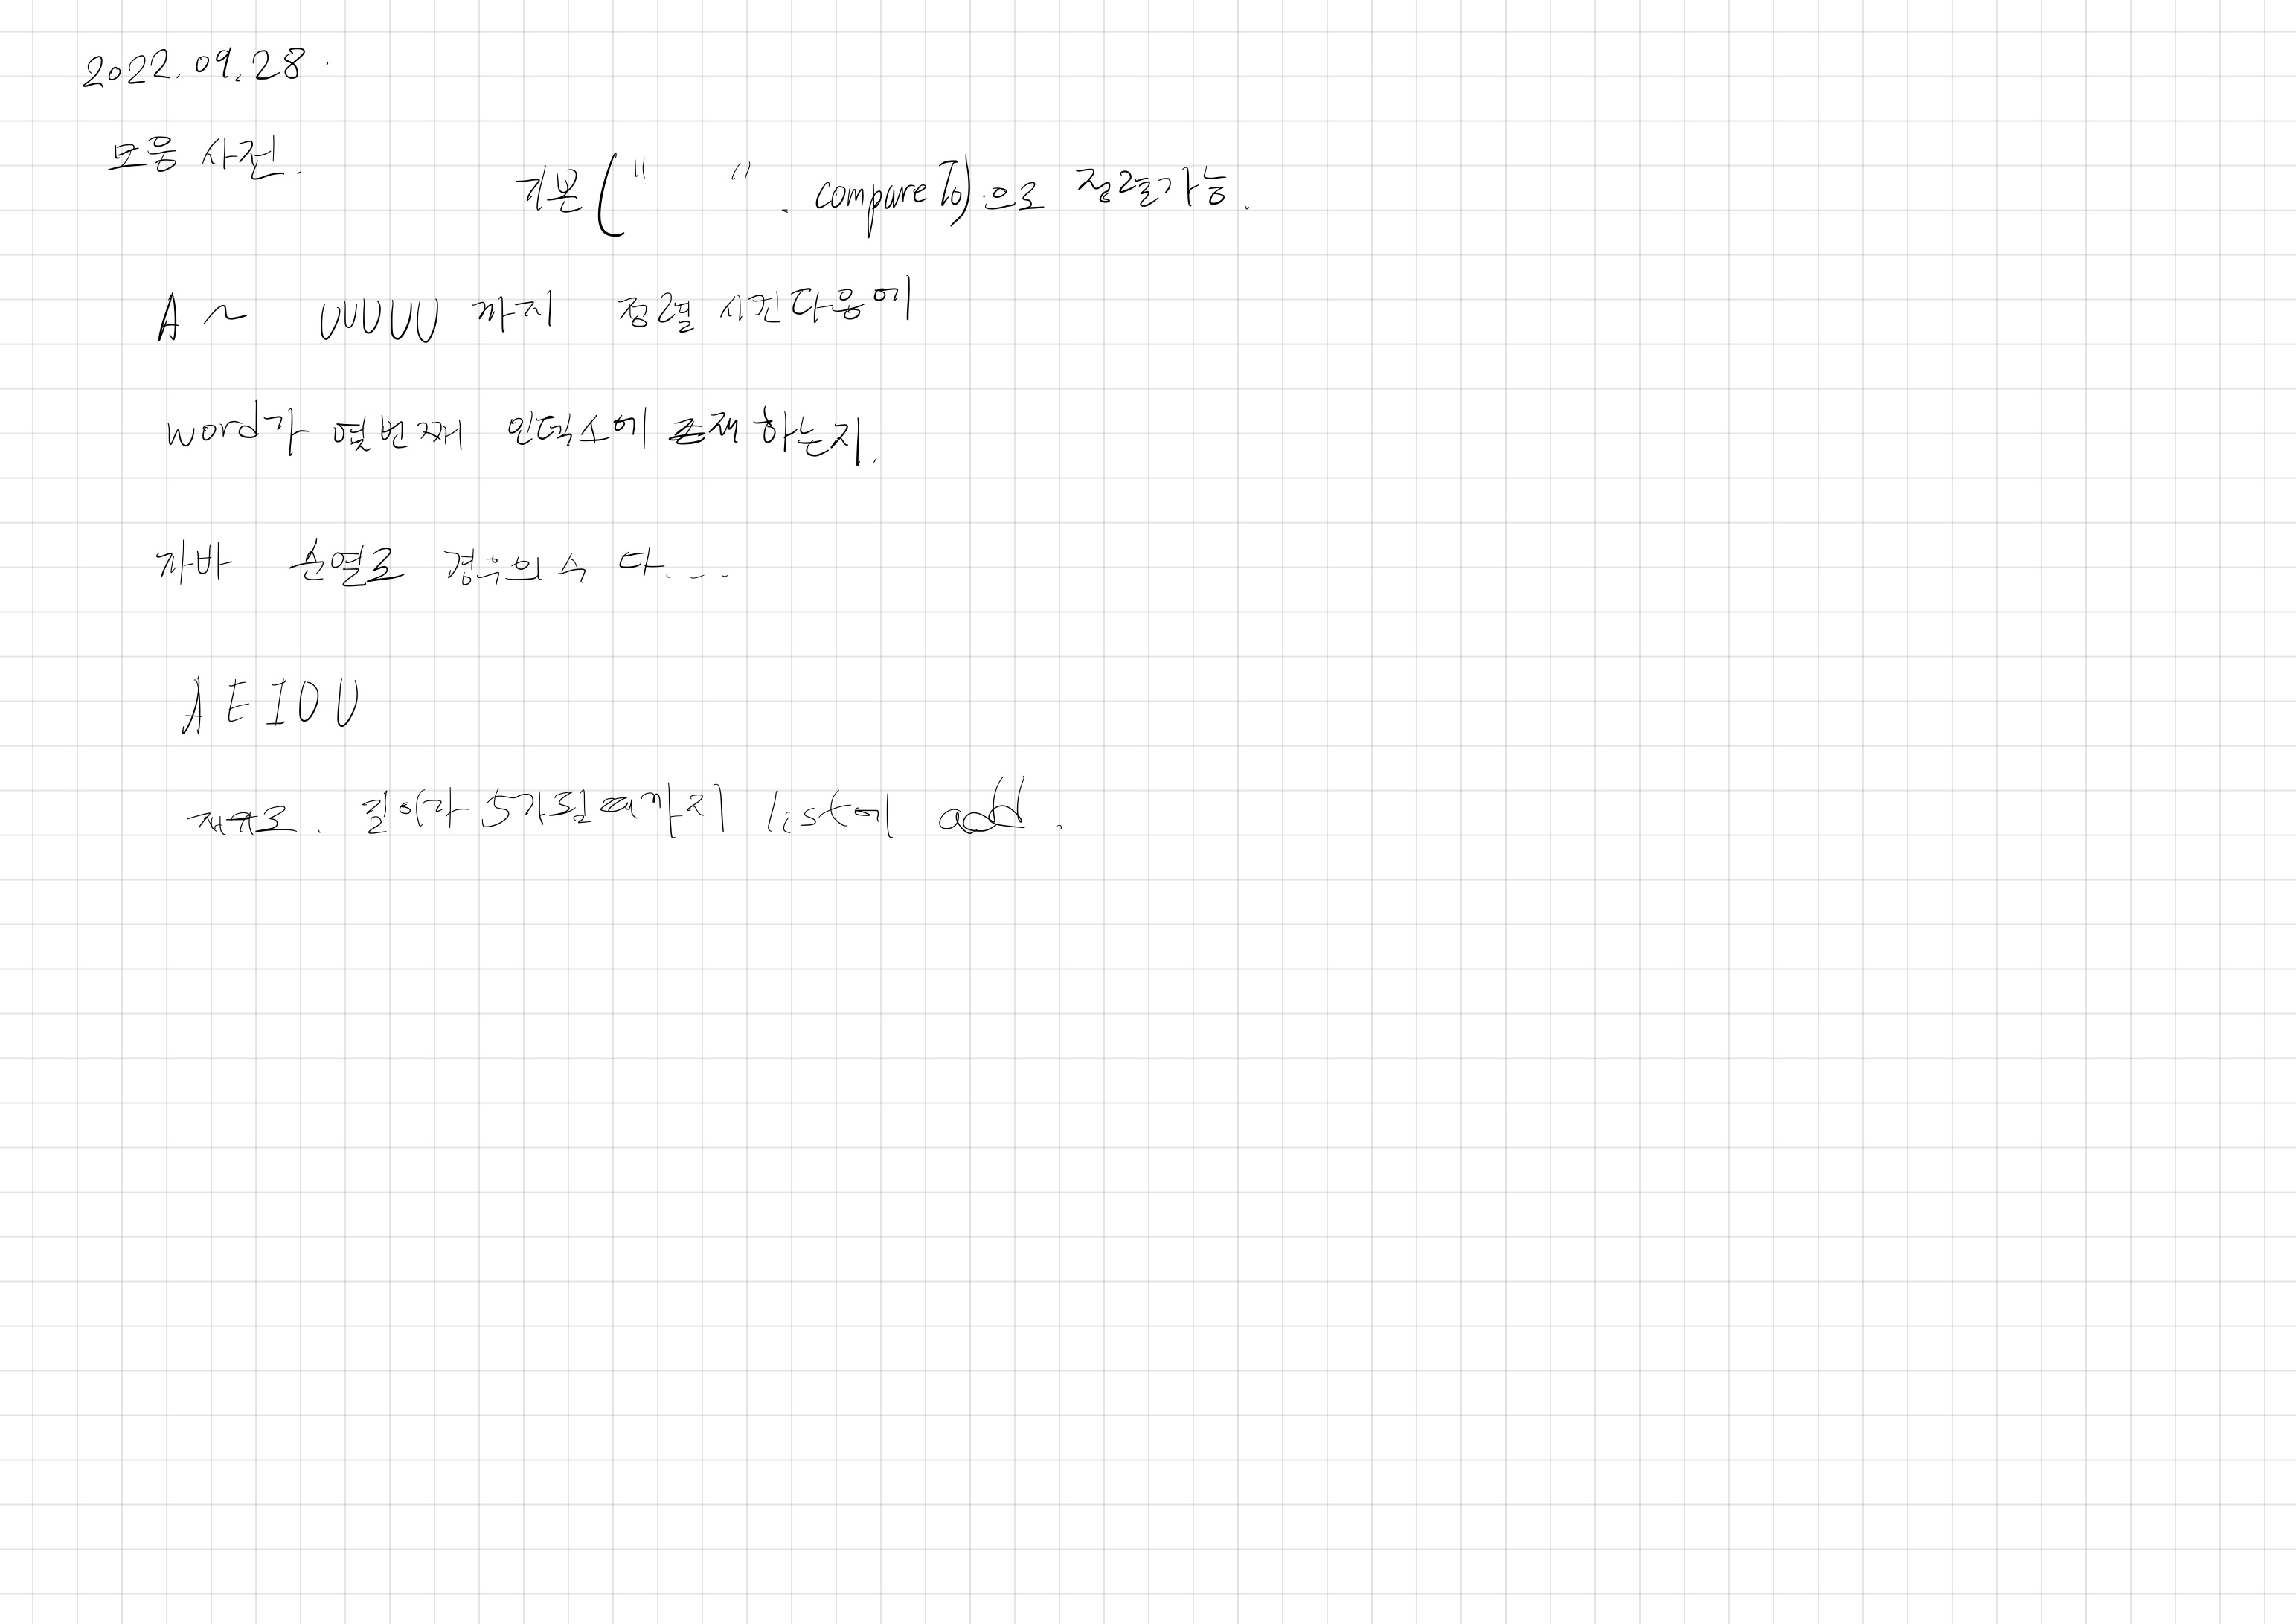 2022.09.28.
모음 사전.
기본(" ".compareTo)으로 정렬가능.
A~ UUUUU 까지 정렬 시킨다음에
word가 몇번째 인덱스에 존재하는지.
자바 순열로 경우의 수 다....
A E I O U
재귀로. 길이가 5가될때까지 list에 add.